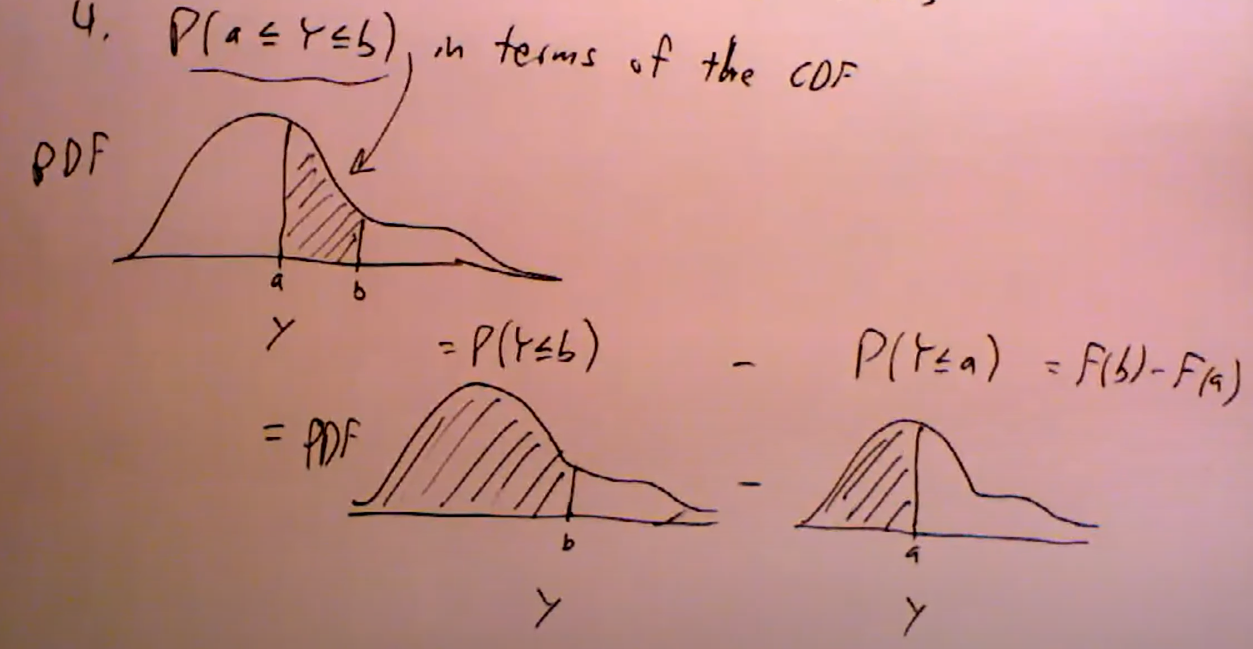 4. P(a ≤ Y ≤ b), in terms of the CDF
PDF
a b
Y
= P(Y ≤ b) - P(Y ≤ a) = F(b) - F(a)
= PDF -
b a
Y Y